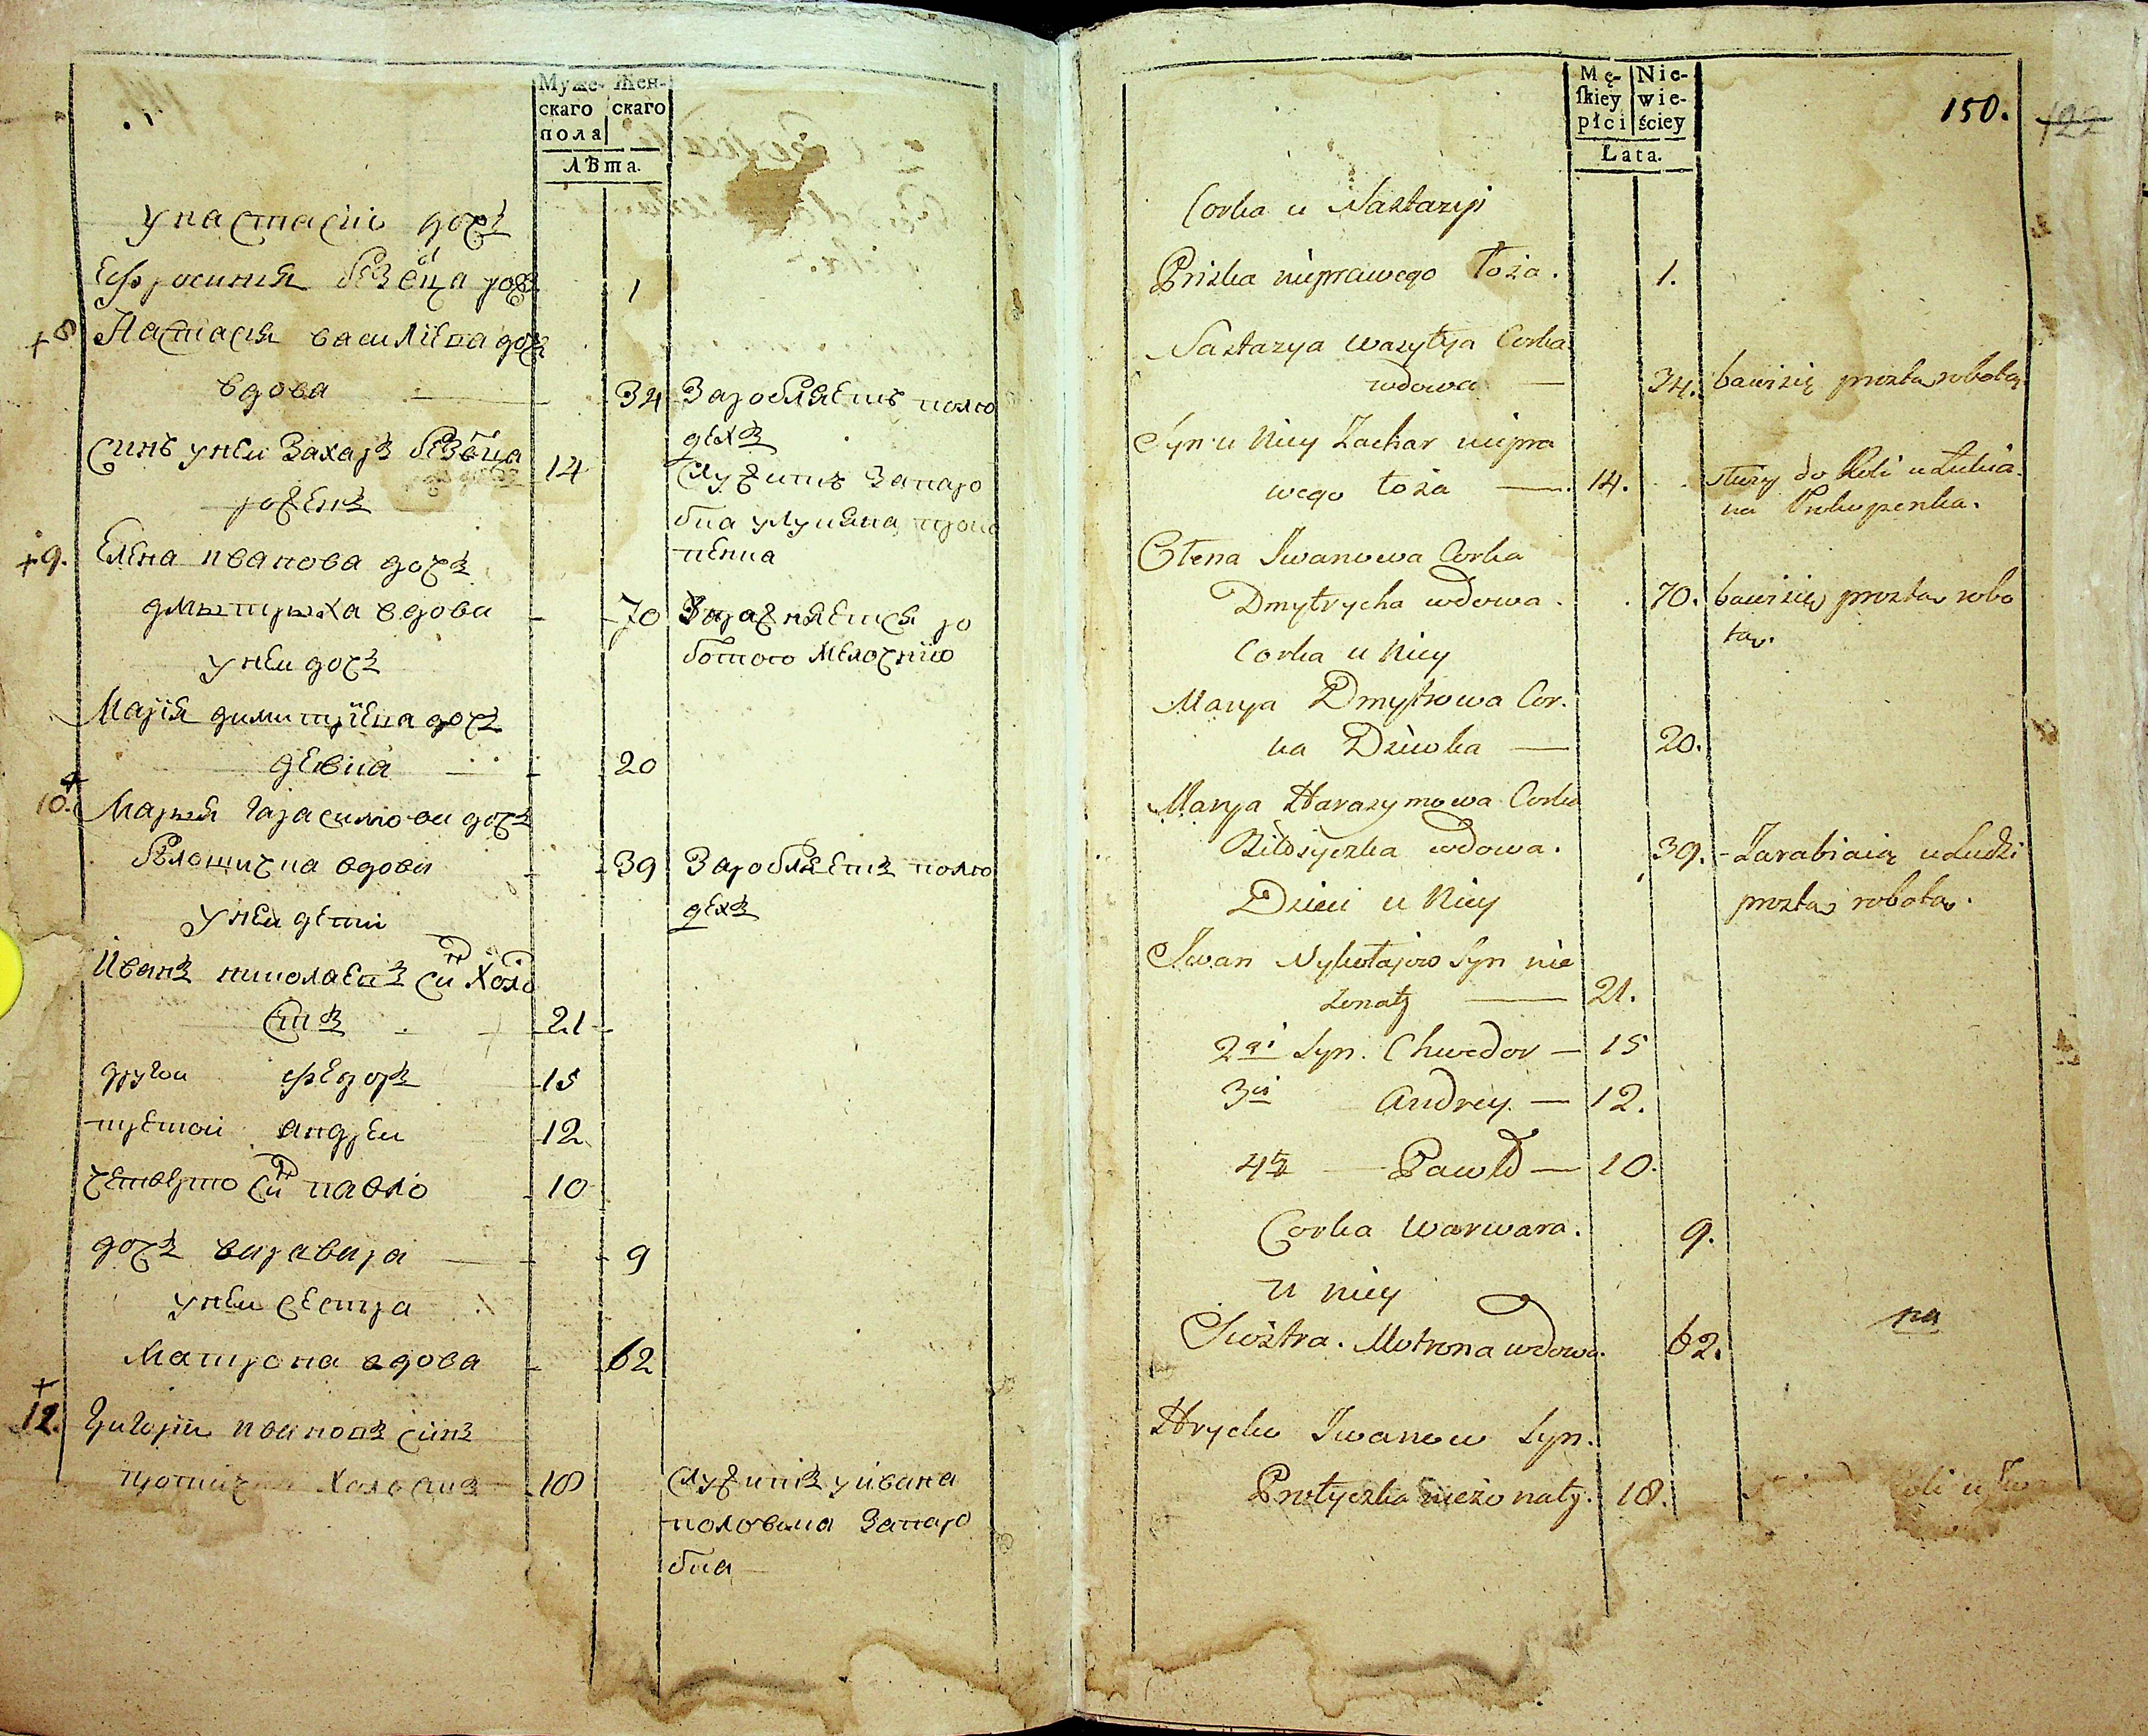 Муже- Жен-
скаго скаго
пола
лѣта.
у настасіи дочъ
Ефросинія безъ оца рож 1
+ 8 Настасія василиева дочъ
вдова 34 Заробляетъ полю
дехъ
Синъ унеи Захаръ безъ оца 14 Служитъ Запаро
роженъ бка улукяна проко
пенка
+ 9. Елена иванова дочъ
дмытрыха вдова 70 Упражняется ро
ботою мелочнію
унеи дочъ
Марія димитріева дочъ
девка 20
+ 10. Марыя гарасимова дочъ
белошичка вдова 39 Заробляетъ полю
дехъ
унеи дети
Иванъ николаевъ си холо
стъ 21
други федоръ 15
третои андреи 12
четверто си павло 10
дочъ варвара 9
унеи сестра
Матрона вдова 62
+ 12. Григорїи ивановъ синъ
холостъ 18 Служитъ уивана
половка Запаро
бка
Mę- Nie-
skiey wie-
płci ściey
Lata.
150. 122
Corka u Nastazyi
Priska nieprawego łoża. 1.
Nastazya Wasylya Corka
wdowa — 34. bawi się prosta robotą
Syn u Niey Zachar niepra
wego łoża — 14. służy do Roli u Lukia
na Prokopenka.
Olena Iwanowa Corka
Dmytrycha wdowa. 70. bawi się prosta robo
ta.
Corka u Niey
Marya Dmytrowa Cor.
ka Dziwka — 20.
Marya Harasymowa Corka
Biłoszyczka wdowa. 39. - Zarabiaią u Ludzi
prosta robota.
Dzieci u Niey
Iwan Nykołajow Syn nie
żonaty — 21.
2gi Syn. Chwedor — 15
3ci Andrey. — 12.
4ty — Pawło — 10.
Corka Warwara. 9.
u niey
Siostra. Motrona wdowa. 62. na
Hrycko Iwanow Syn.
Protyczka nieżonaty. 18. Roli u Iwa